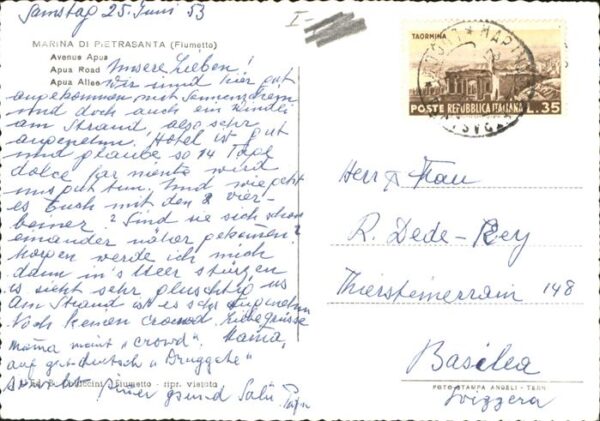 Samstag 25. Juni 53
I-
MARINA DI PIETRASANTA (Fiumetto)
Avenue Apua
Apua Road
Apua Allee
Unsere Lieben!
Wir sind hier gut
angekommen mit Sonnenschein
und doch auch ein Windli
am Strand, also sehr
angenehm. Hotel ist gut
und glaube, so 14 Tage
dolce far niente wird
uns gut tun. Und wie geht
es Euch mit den 8 vier-
beiner? Sind sie sich schon
einander näher gekommen?
Morgen werde ich mich
dann in's Meer stürzen
es sieht sehr pluschtig us
Am Strand ist es sehr angenehm
Noch keinen crowd. Liebe Grüsse
Mama meint "crowd". Mama,
auf gut deutsch "Druggete"
immer gsund Salü
Fiumetto - ripr. vietata
TAORMINA
POSTE REPUBBLICA ITALIANA L. 35
Herr & Frau
R. Dede-Rey
Thiersteinerrain 148
Basilea
FOTOSTAMPA ANGELI - TERNI
Svizzera